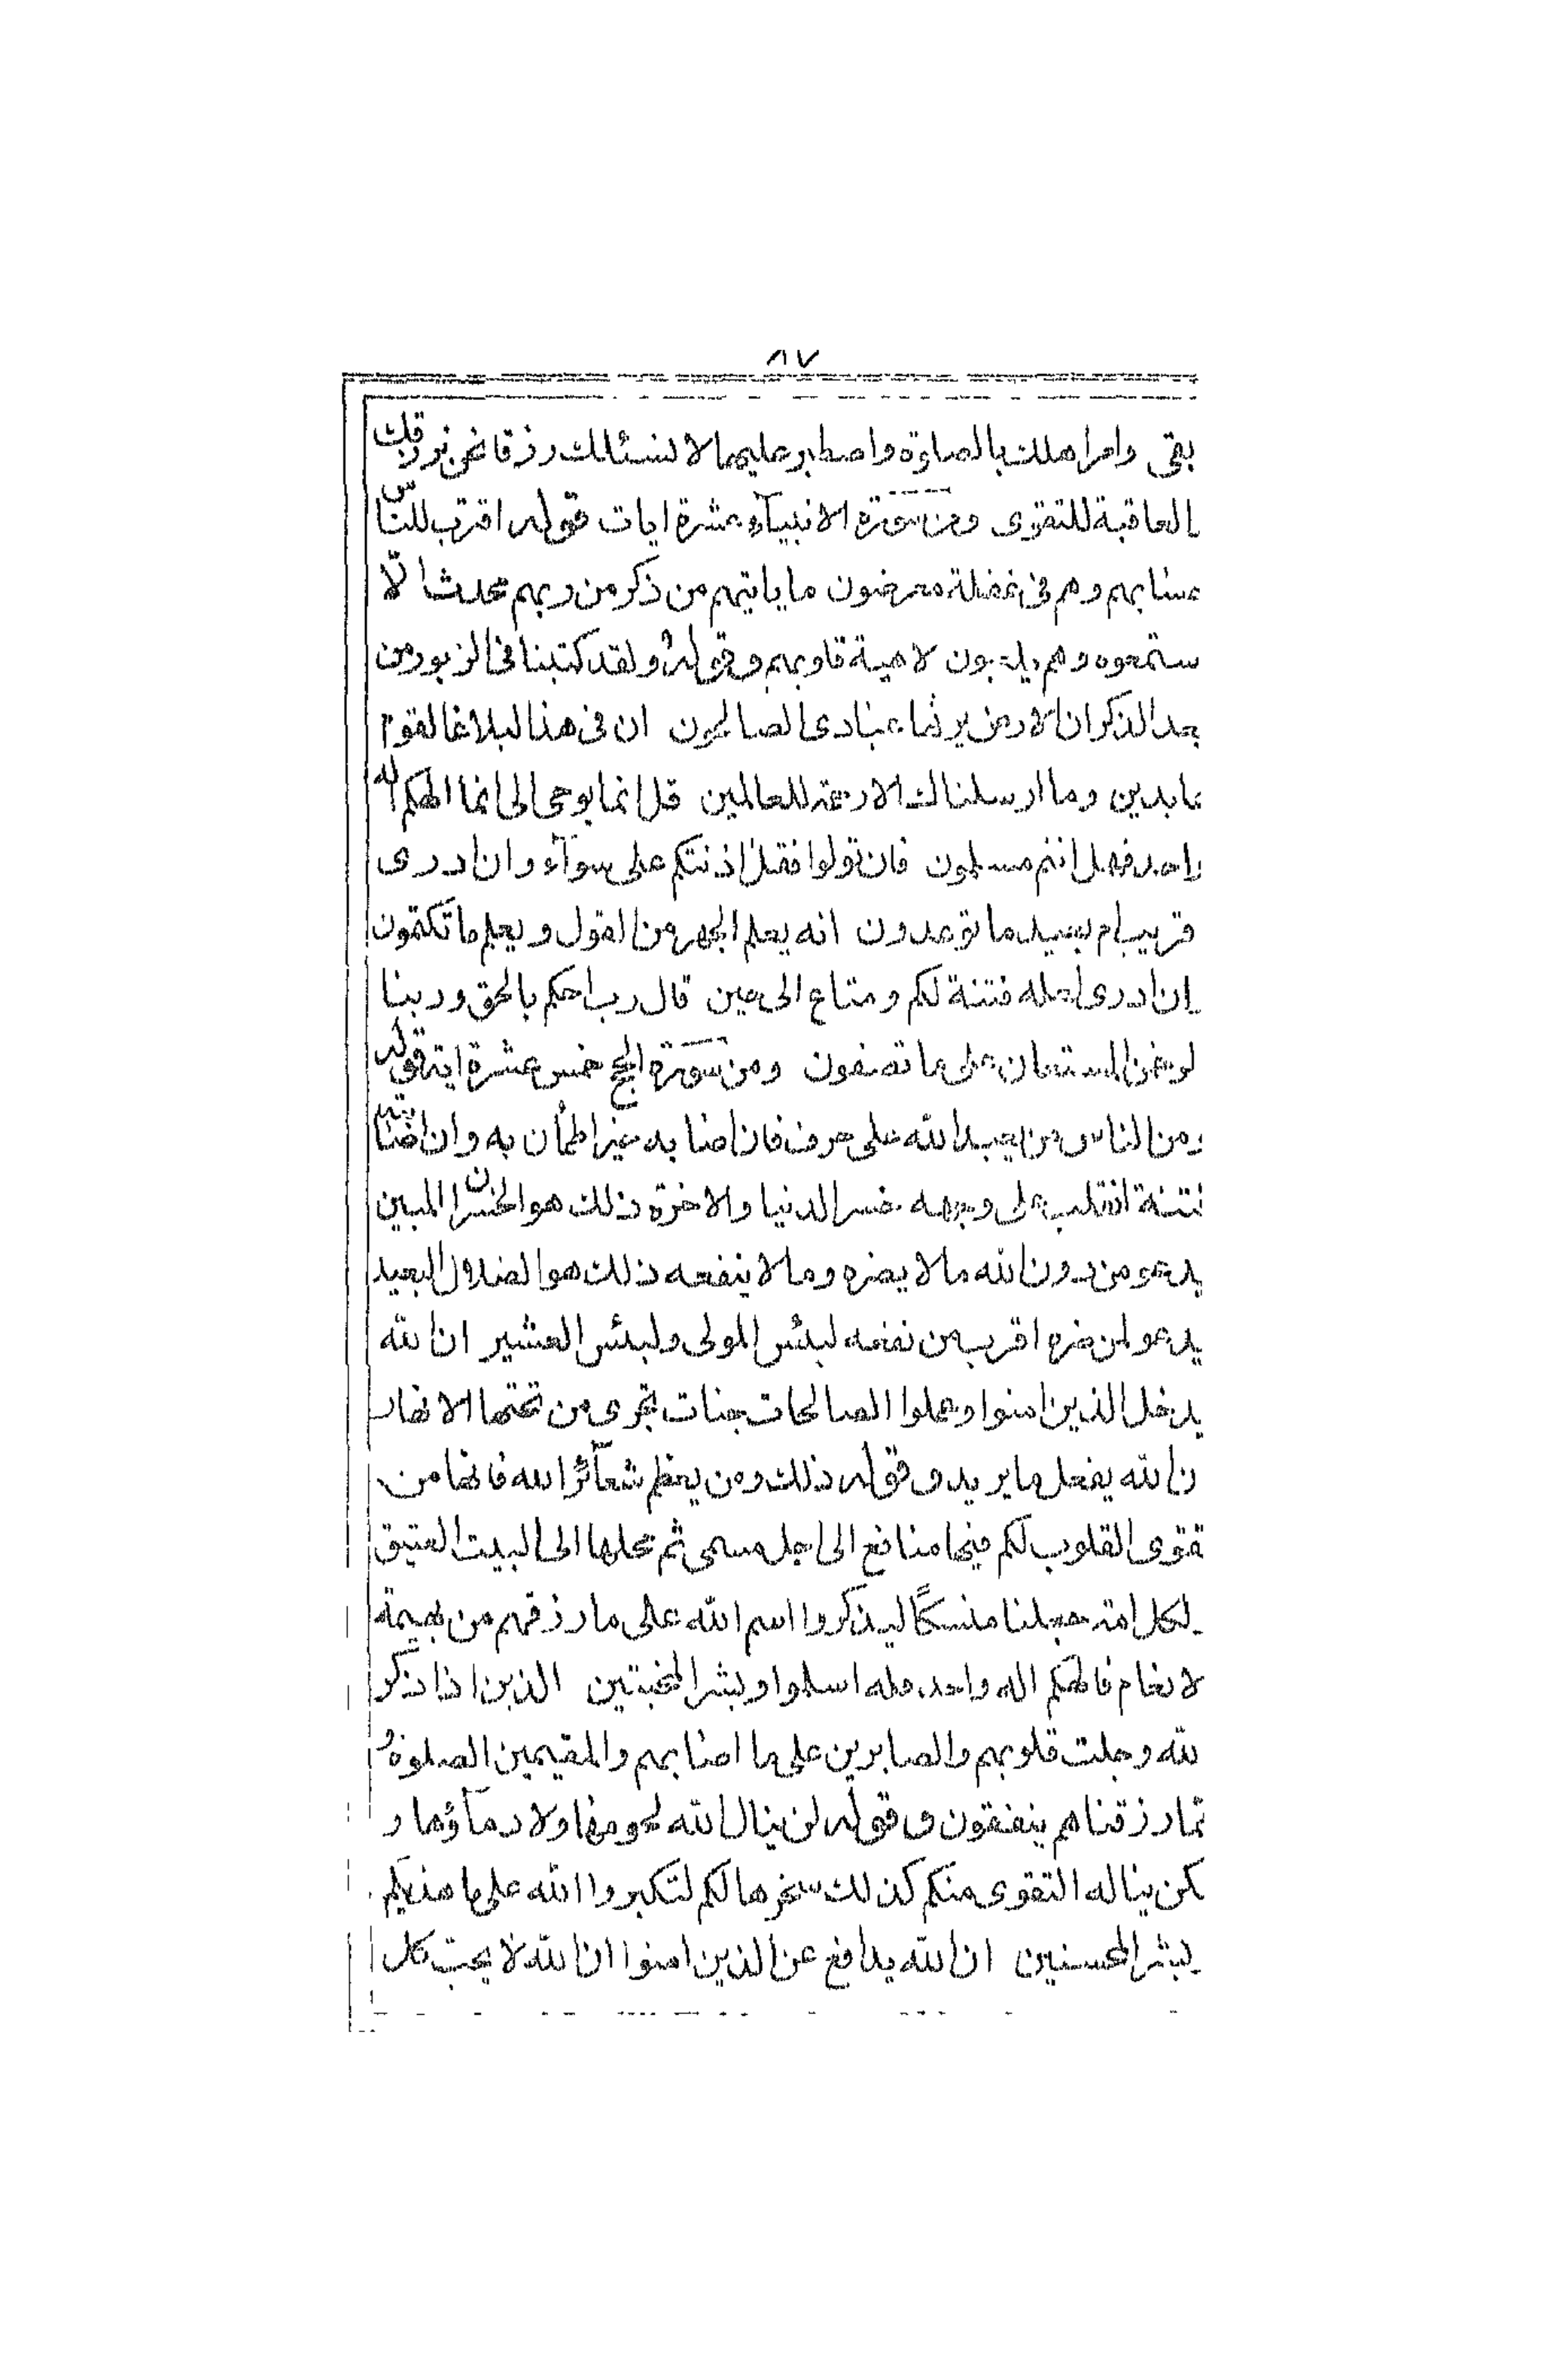 ٨٧
بقى وامراهلك بالصلوة واصطبر عليها لا نسئلك رزقا نحن نرزقك
العاقبة للتقوى ومن سورة الانبيآء عشرة ايات قوله اقترب للنّاس
حسابهم وهم فى غفلة معرضون ما ياتيهم من ذكر من ربهم محدث الّا
ستمعوه وهم يلعبون لاهية قلوبهم وقوله ولقد كتبنا فى الزبور من
بعد الذكر ان الارض يرثها عبادى الصالحون ان فى هذا لبلاغا لقوم
عابدين وما ارسلناك الا رحمة للعالمين قل انما يوحى الى انما الهكم اله
واحد فهل انتم مسلمون فان تولوا فقل اذنتكم على سوآء وان ادرى
قريب ام بعيد ما توعدون انه يعلم الجهر من القول ويعلم ما تكتمون
ان ادرى لعله فتنة لكم ومتاع الى حين قال رب احكم بالحق وربنا
لرحمن المستعان على ما تصفون ومن سورة الحج خمس عشرة اية قوله
ومن الناس من يعبد الله على حرف فان اصابه خير اطمأن به وان اصابته
فتنة انقلب على وجهه خسر الدنيا والاخرة ذلك هو الخسران المبين
يدعو من دون الله ما لا يضره وما لا ينفعه ذلك هو الضلال البعيد
يدعو لمن ضره اقرب من نفعه لبئس المولى ولبئس العشير ان الله
يدخل الذين امنوا وعملوا الصالحات جنات تجرى من تحتها الانهار
ن الله يفعل ما يريد وقوله ذلك ومن يعظم شعآئر الله فانها من
تقوى القلوب لكم فيها منافع الى اجل مسمى ثم محلها الى البيت العتيق
لكل امة جعلنا منسكًا ليذكروا اسم الله على ما رزقهم من بهيمة
لانعام فالهكم اله واحد فله اسلموا وبشر المخبتين الذين اذا ذكر
لله وجلت قلوبهم والصابرين على ما اصابهم والمقيمين الصلوة و
مما رزقناهم ينفقون وقوله لن ينال الله لحومها ولا دمآؤها و
كن يناله التقوى منكم كذلك سخرها لكم لتكبروا الله على ما هديكم
بشر المحسنين ان الله يدافع عن الذين امنوا ان الله لا يحبّ كل